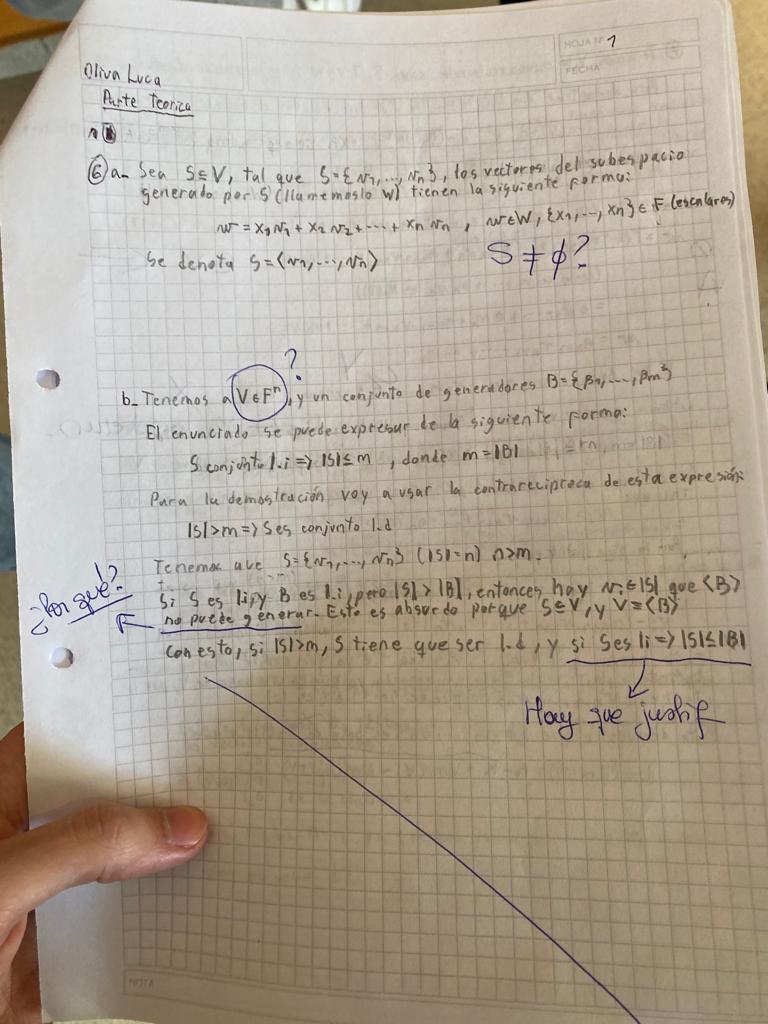 HOJA Nº 1
FECHA
Oliva Luca
Parte Teorica
⑥ a- Sea S⊆V, tal que S={v₁,...,vₙ}, los vectores del subespacio
generado por S (llamemoslo W) tienen la siguiente forma:
w = x₁v₁ + x₂v₂ + ... + xₙvₙ , w∈W, {x₁,...,xₙ}∈F (escalares)
Se denota S=⟨v₁,...,vₙ⟩
S≠∅?
?
b- Tenemos a V∈Fⁿ, y un conjunto de generadores B={β₁,...,βm}
El enunciado se puede expresar de la siguiente forma:
S conjunto l.i => |S|≤m , donde m=|B|
Para la demostración voy a usar la contrareciproca de esta expresión:
|S|>m => S es conjunto l.d
Tenemos que S={v₁,...,vₙ} (|S|=n) n>m.
Si S es li, y B es l.i, pero |S|>|B|, entonces hay vᵢ∈|S| que ⟨B⟩
¿Por qué?
no puede generar. Esto es absurdo porque S⊆V, y V=⟨B⟩
Con esto, si |S|>m, S tiene que ser l.d, y si S es li => |S|≤|B|
Hay que justif